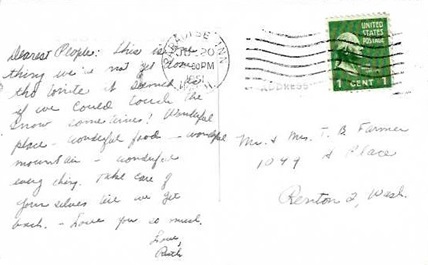 Dearest Peoples: This is
thing we've not yet done
tho while it seemed as
if we could touch the
snow sometimes! Wonderful
place - wonderful food - wonderful
mountain - wonderful
every thing. Take care of
your selves till we get
back. - Love you so much.
Love,
Ruth
PARADISE INN
JUL 20
PM
1951
UNITED STATES
POSTAGE
1 CENT 1
ADDRESS
Mr. & Mrs. T. B. Farmer
1044 A Place
Renton 2, Wash.